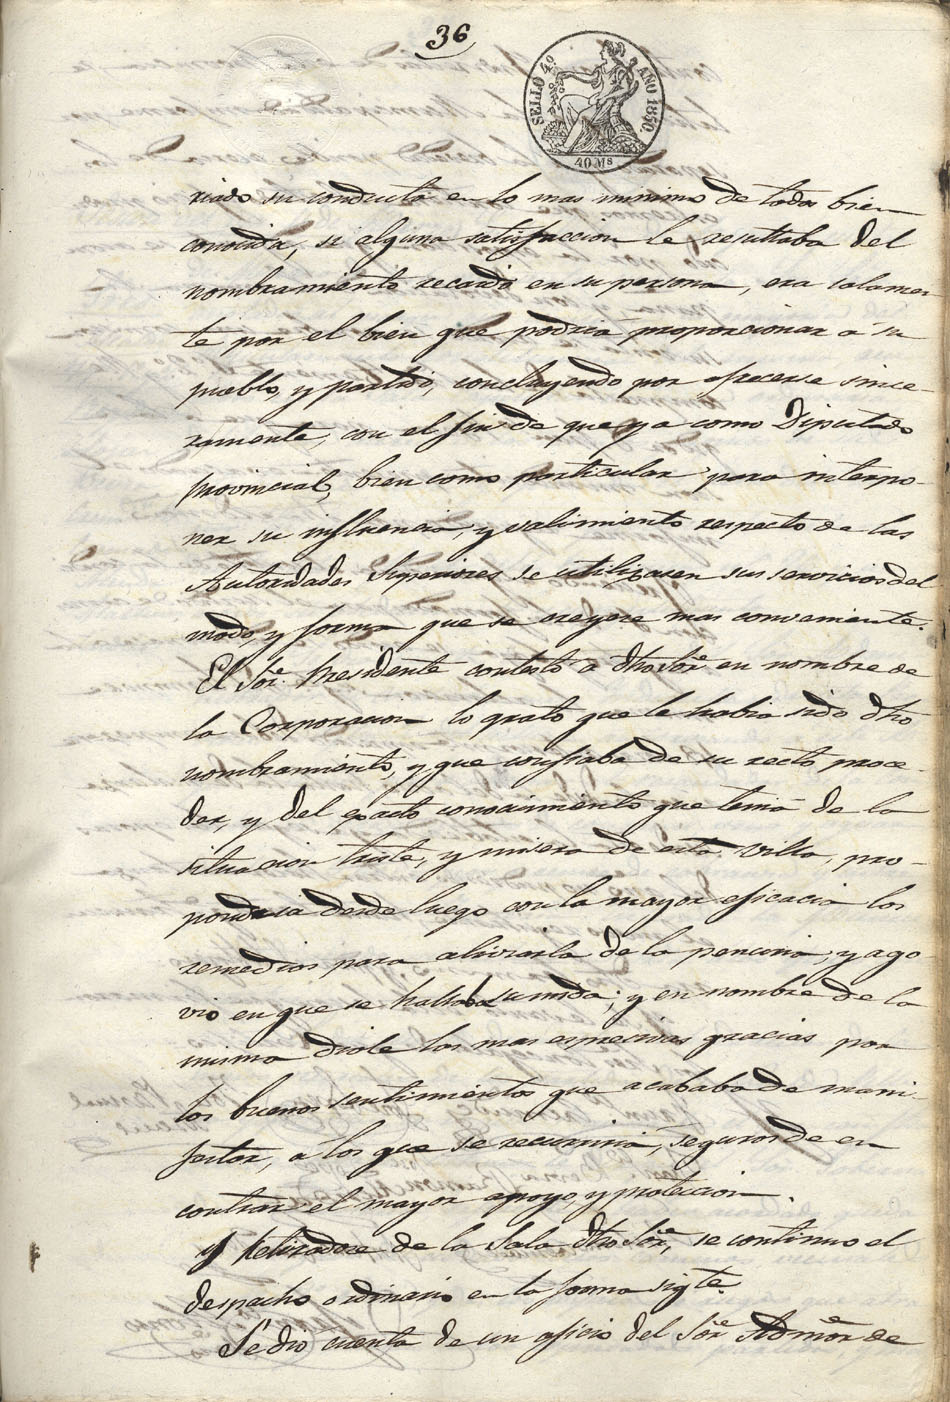 36
SELLO 4º AÑO 1850.
40 Ms
riado su conducta en lo mas minimo de todos bien
conocida, si alguna satisfaccion le resultaba del
nombramiento recaido en su persona, era solamen-
te por el bien que podria proporcionar a su
pueblo, y partido, concluyendo por ofrecerse since-
ramente, con el fin de que ya como Diputado
provincial, bien como particular para interpo-
ner su influencia, y valimiento respecto de las
Autoridades Superiores se utilizasen sus servicios del
modo, y forma que se creyere mas conveniente.
El Sor. Presidente contestó a dho Sor. en nombre de
la Corporacion lo grato que le habia sido dho
nombramiento, y que confiaba de su recto proce-
der, y del exacto conocimiento que tenia de la
situacion triste, y misera de esta villa, pro-
pondria desde luego con la mayor eficacia los
remedios para aliviarla de la penuria, y ago-
vio en que se hallaba sumida; y en nombre de la
misma diole las mas espresivas gracias por
los buenos sentimientos que acababa de mani-
festar, a los que se recurriria, seguros de en
contrar el mayor apoyo, y proteccion.
Y retiradose de la Sala dho Sor., se continuo el
despacho ordinario en la forma sigte.
Se dio cuenta de un oficio del Sor. Admor. de